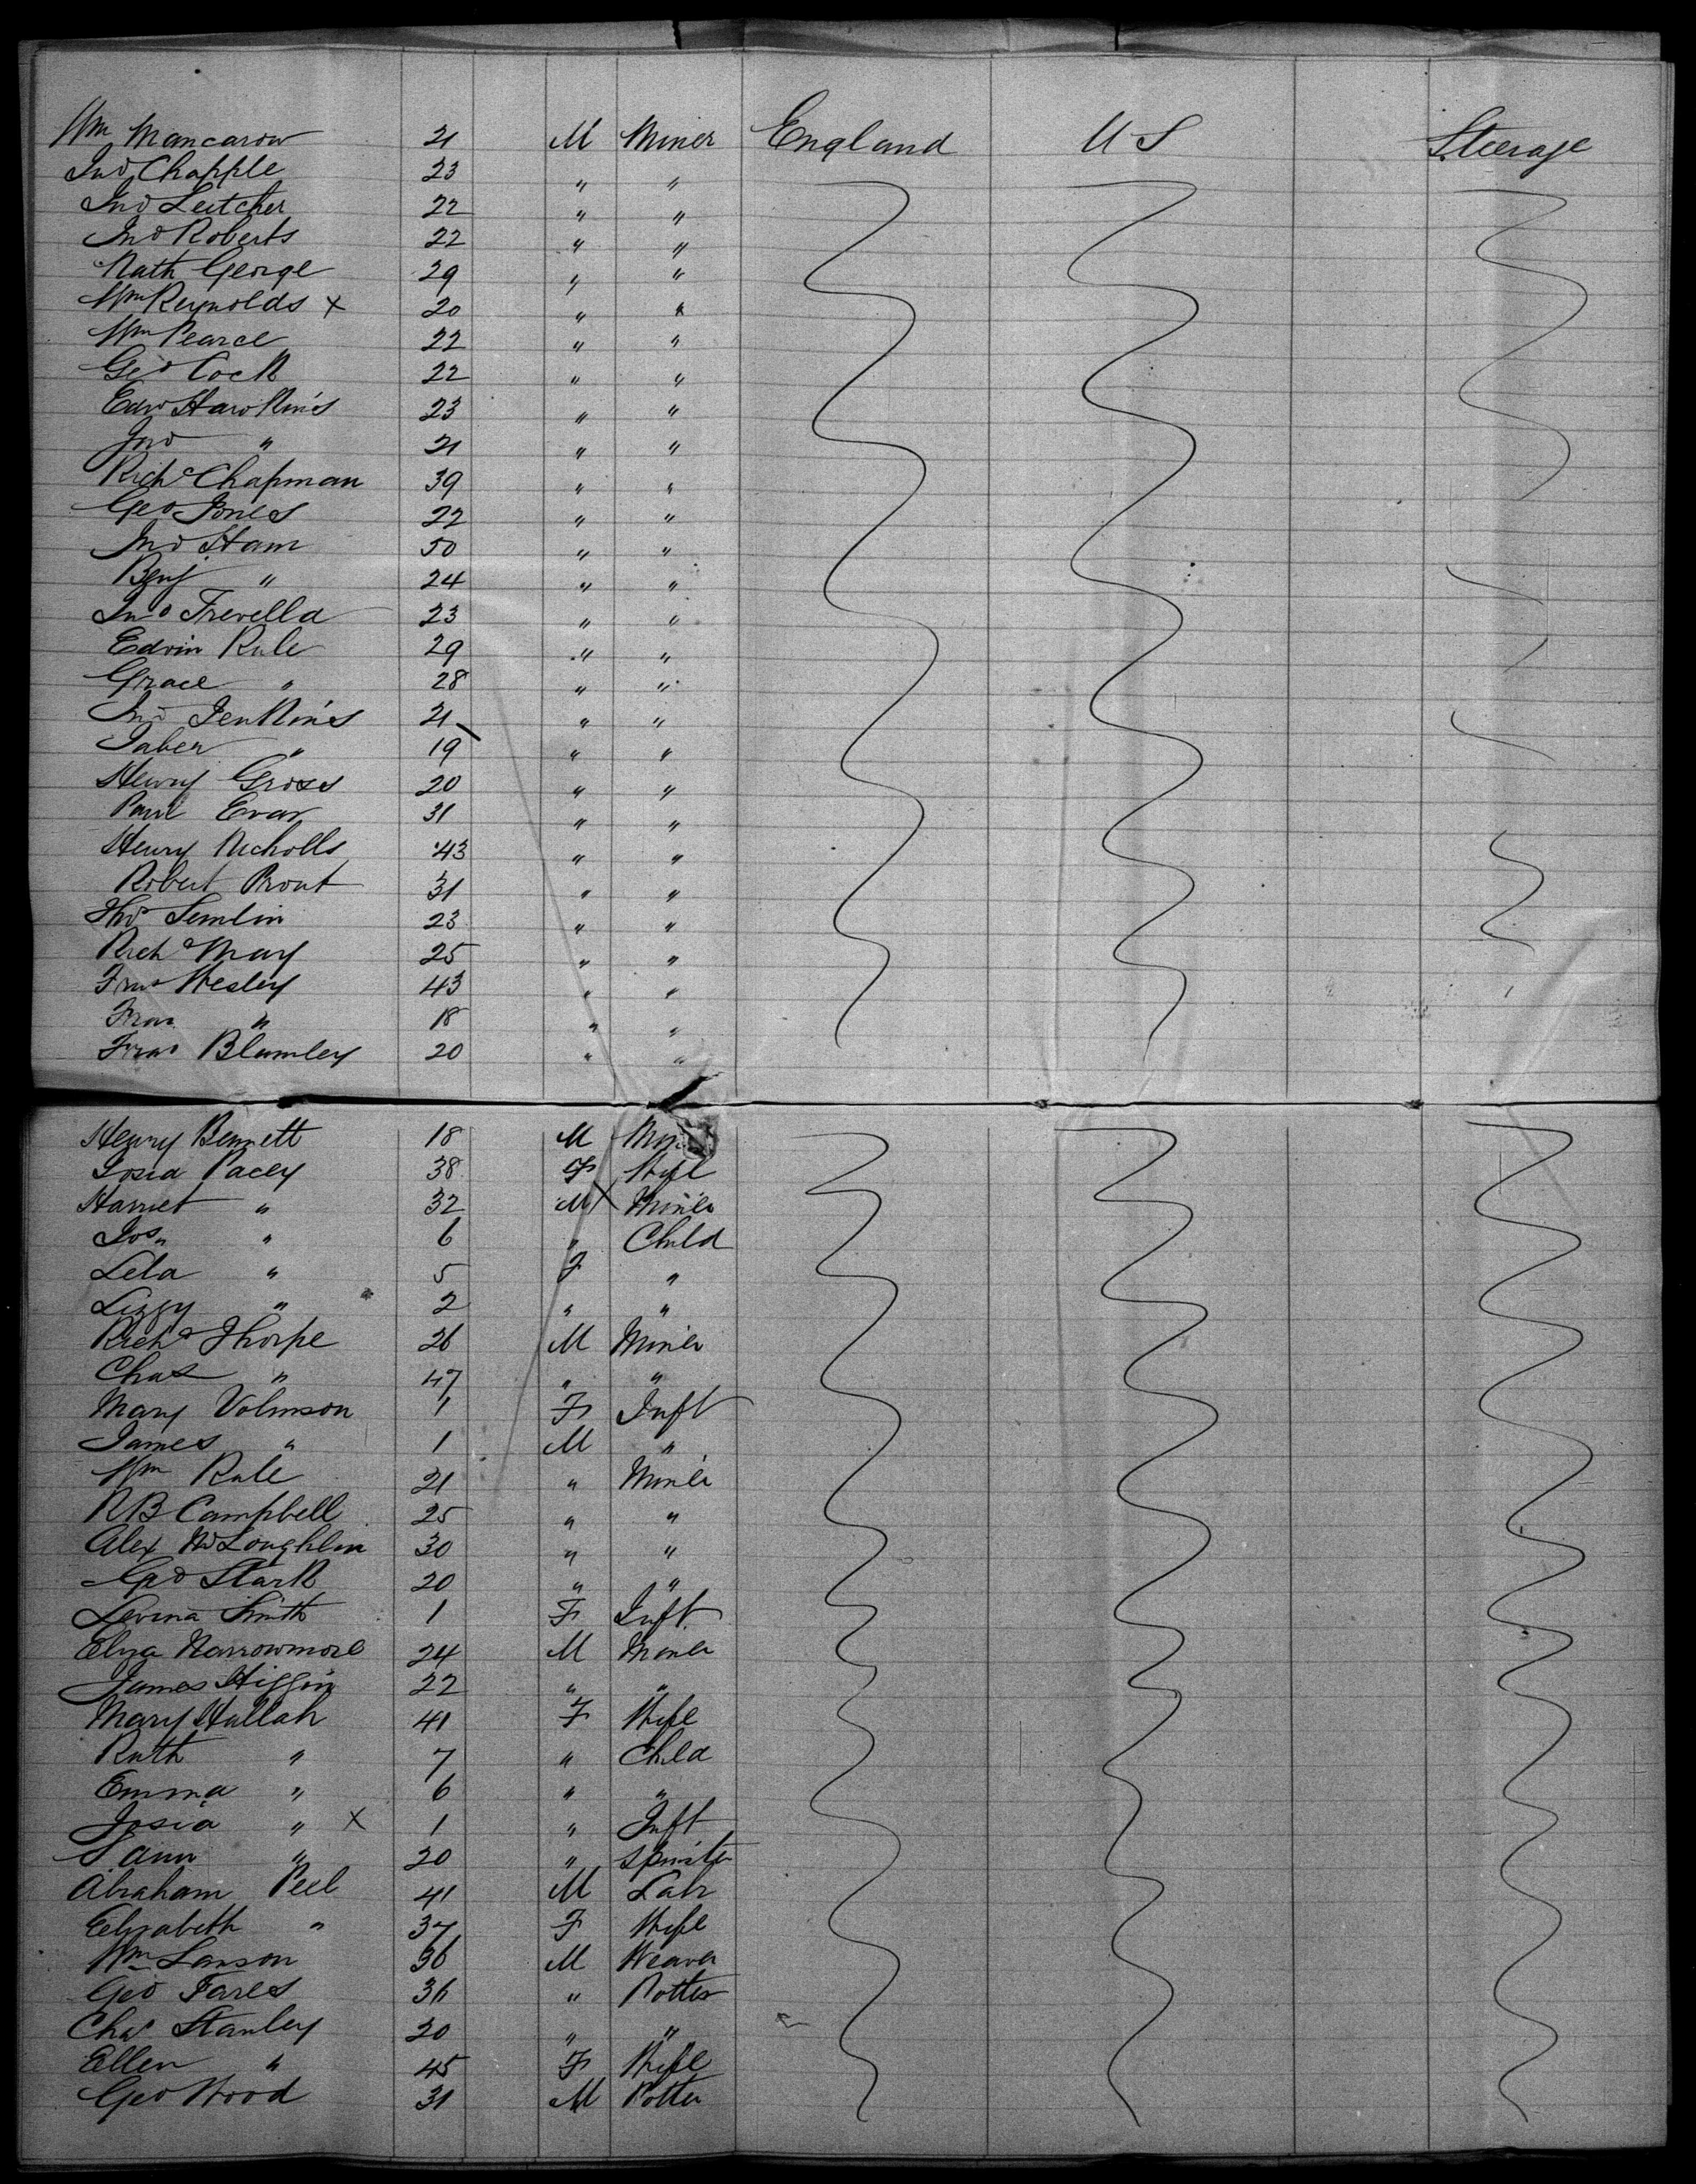 Wm Mancarow 21 M Miner England U S Steerage
Jno Chapple 23 " "
Jno Leitcher 22 " "
Jno Roberts 22 " "
Nath George 29 " "
Wm Reynolds x 20 " "
Wm Pearce 22 " "
Geo Cock 22 " "
Edw Hawkins 23 " "
Jno " 21 " "
Richd Chapman 39 " "
Geo Jones 22 " "
Jno Ham 50 " "
Benj " 24 " "
Jno Trevella 23 " "
Edwin Rule 29 " "
Grace " 28 " "
Jno Jenkins 21 " "
Jaber " 19 " "
Henry Gross 20 " "
Paul Evar 31 " "
Henry Nicholls 43 " "
Robert Prout 31 " "
Thos Semlin 23 " "
Richd May 25 " "
Fras Wesley 43 " "
Fras " 18 " "
Fras Blumley 20 " "
Henry Bennett 18 M Min
Josia Pacey 38 F Wife
Harriet " 32 M x Miner
Jos " 6 " Child
Lela " 5 F "
Lizzy " 2 " "
Richd Thorpe 26 M Miner
Chas " 47 " "
Mary Volmson 1 F Inft
James " 1 M "
Wm Rule 21 " Miner
R B Campbell 25 " "
Alex McLoughlin 30 " "
Geo Stark 20 " "
Levina Smith 1 F Inft
Eliza Narrowmore 24 M Miner
James Higgin 22 " "
Mary Hallah 41 F Wife
Ruth " 7 " Child
Emma " 6 " "
Josia " x 1 " Inft
S Ann " 20 " Spinster
Abraham Peel 41 M Labr
Elizabeth " 37 F Wife
Wm Lanson 36 M Weaver
Geo Fares 36 " Potter
Chas Stanley 20 " "
Ellen " 45 F Wife
Geo Wood 31 M Potter